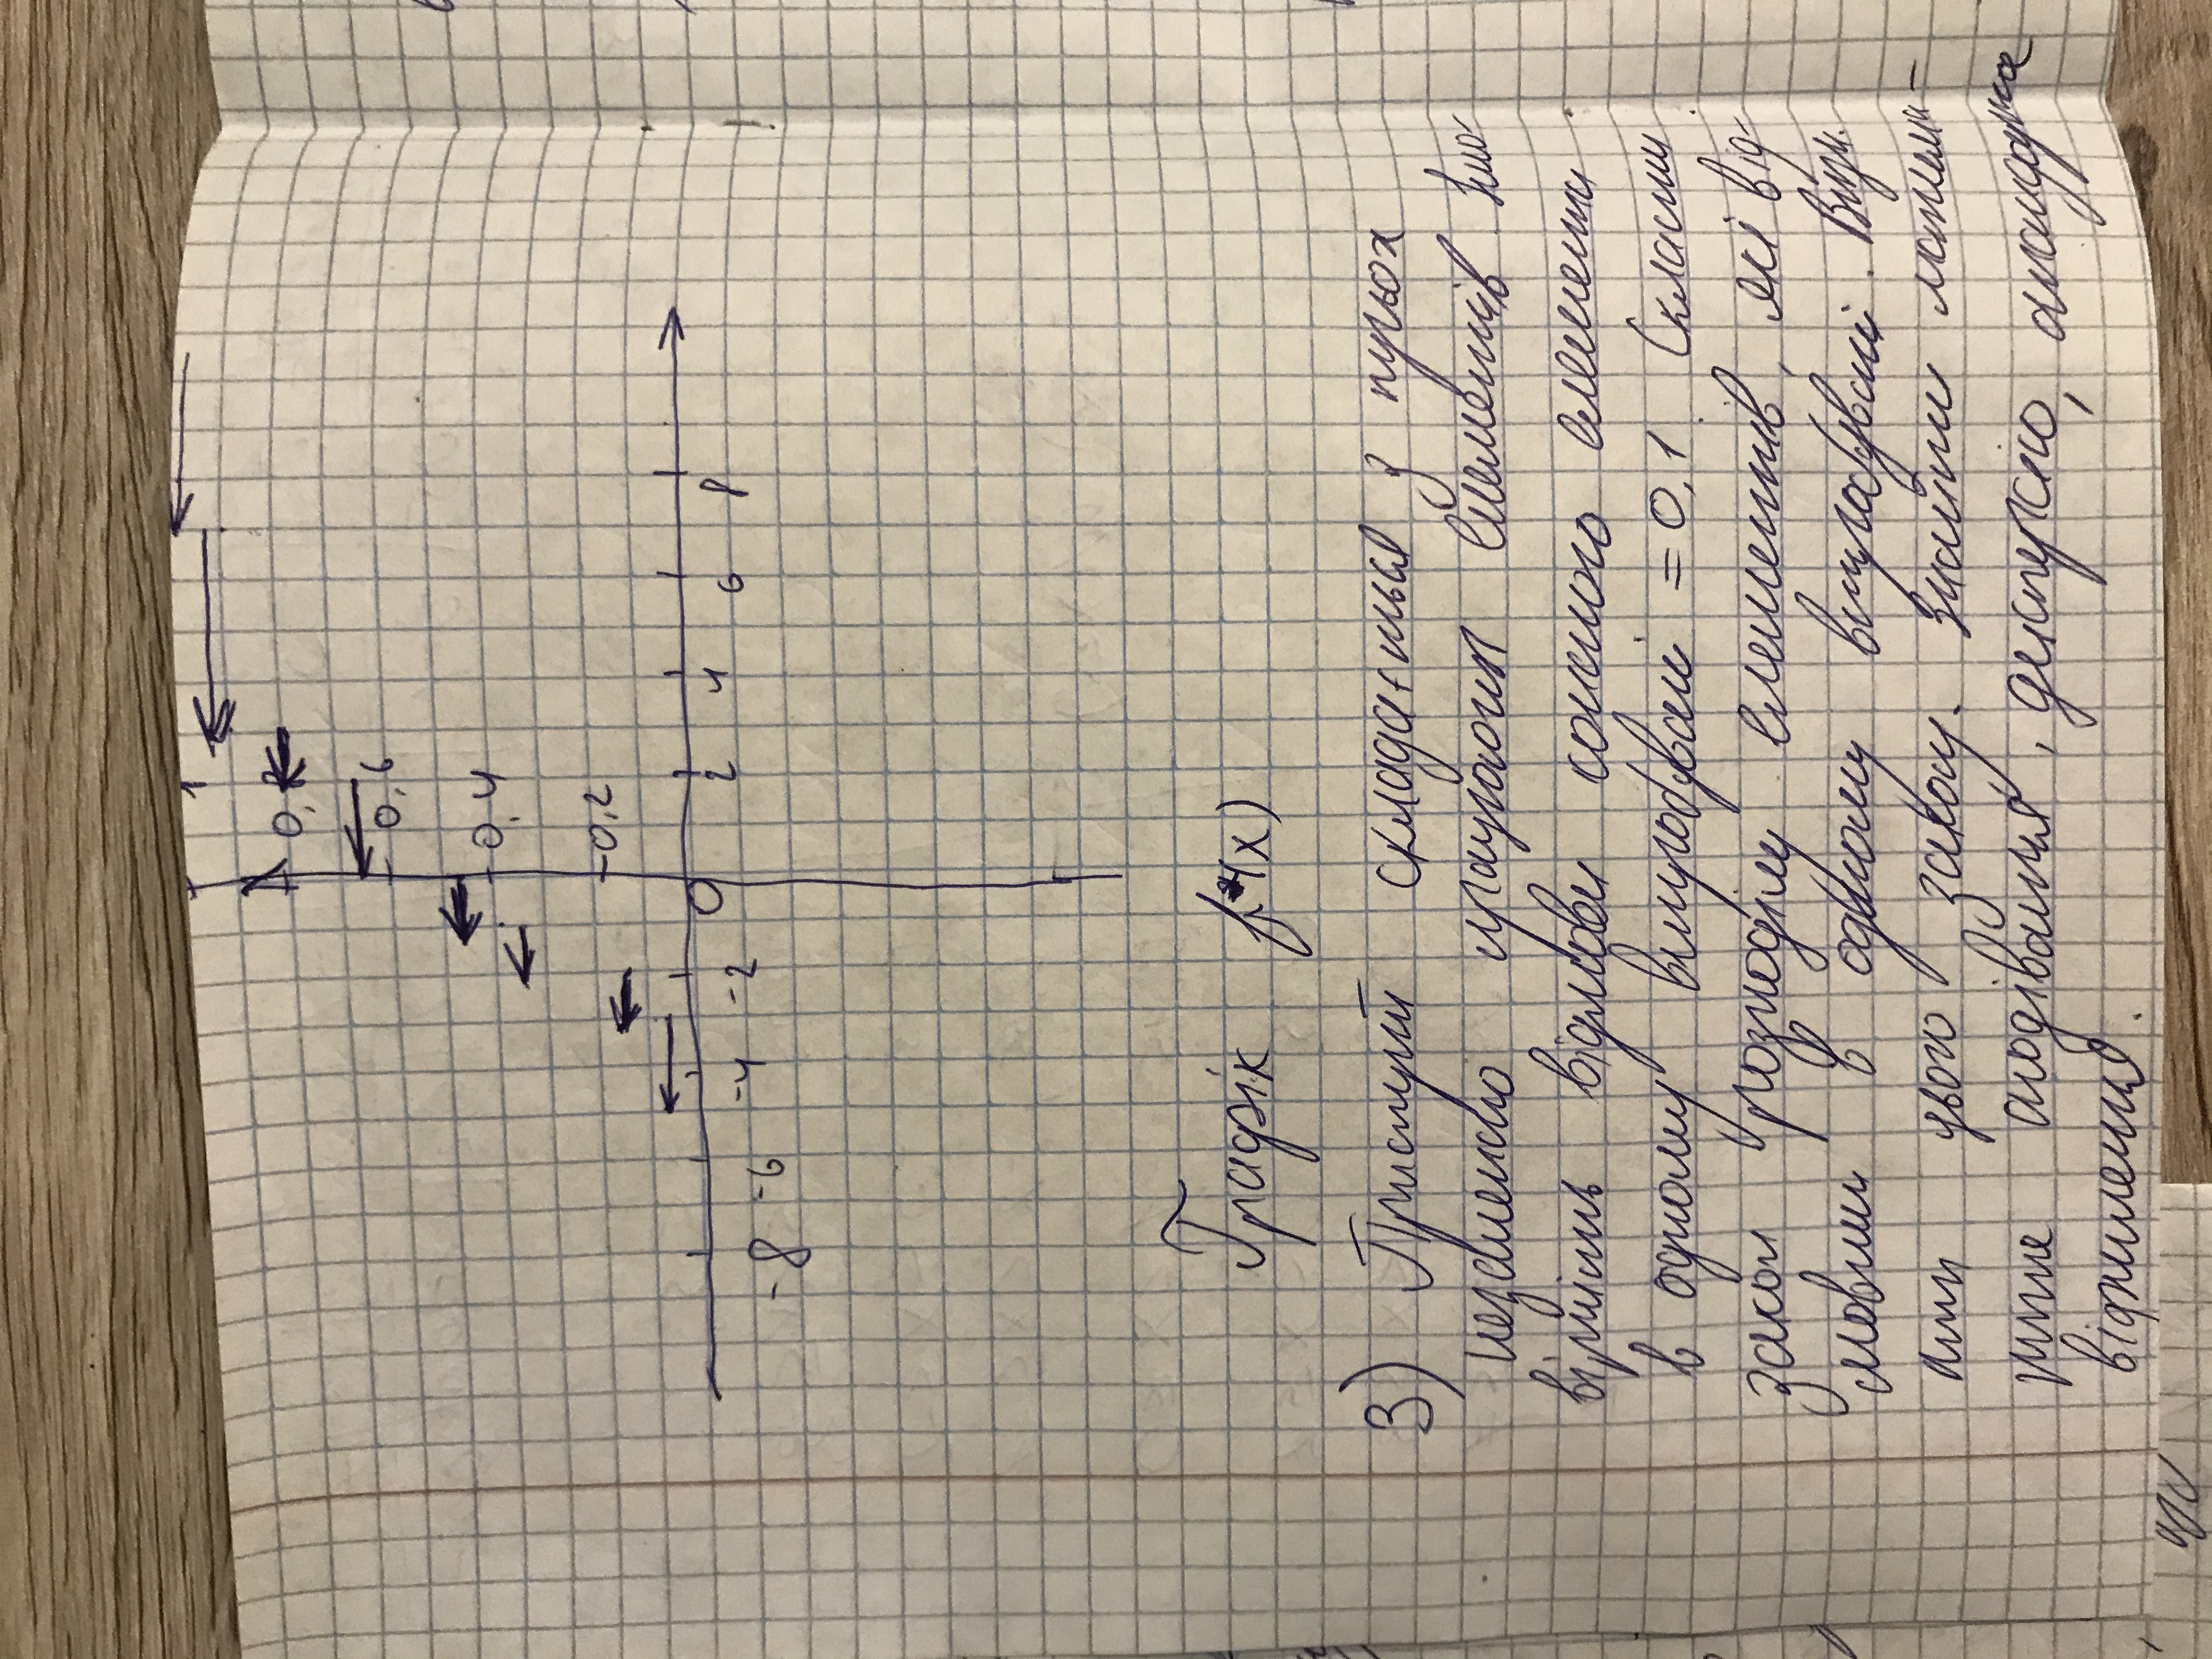 1
0,8
0,6
0,4
0,2
0
-8 -6 -4 -2 2 4 6 8
Графік f*(x)
3) Пристрій складається з трьох
незалежно працюючих елементів. Ймо-
вірність відмови кожного елементи
в одному випробувані = 0,1. Скласти
закон розподілу елементів, які від-
мовили в одному випробувані.
цього закону. Знайти матема-
тичне сподівання, дисперсію, стандартне
відхилення.